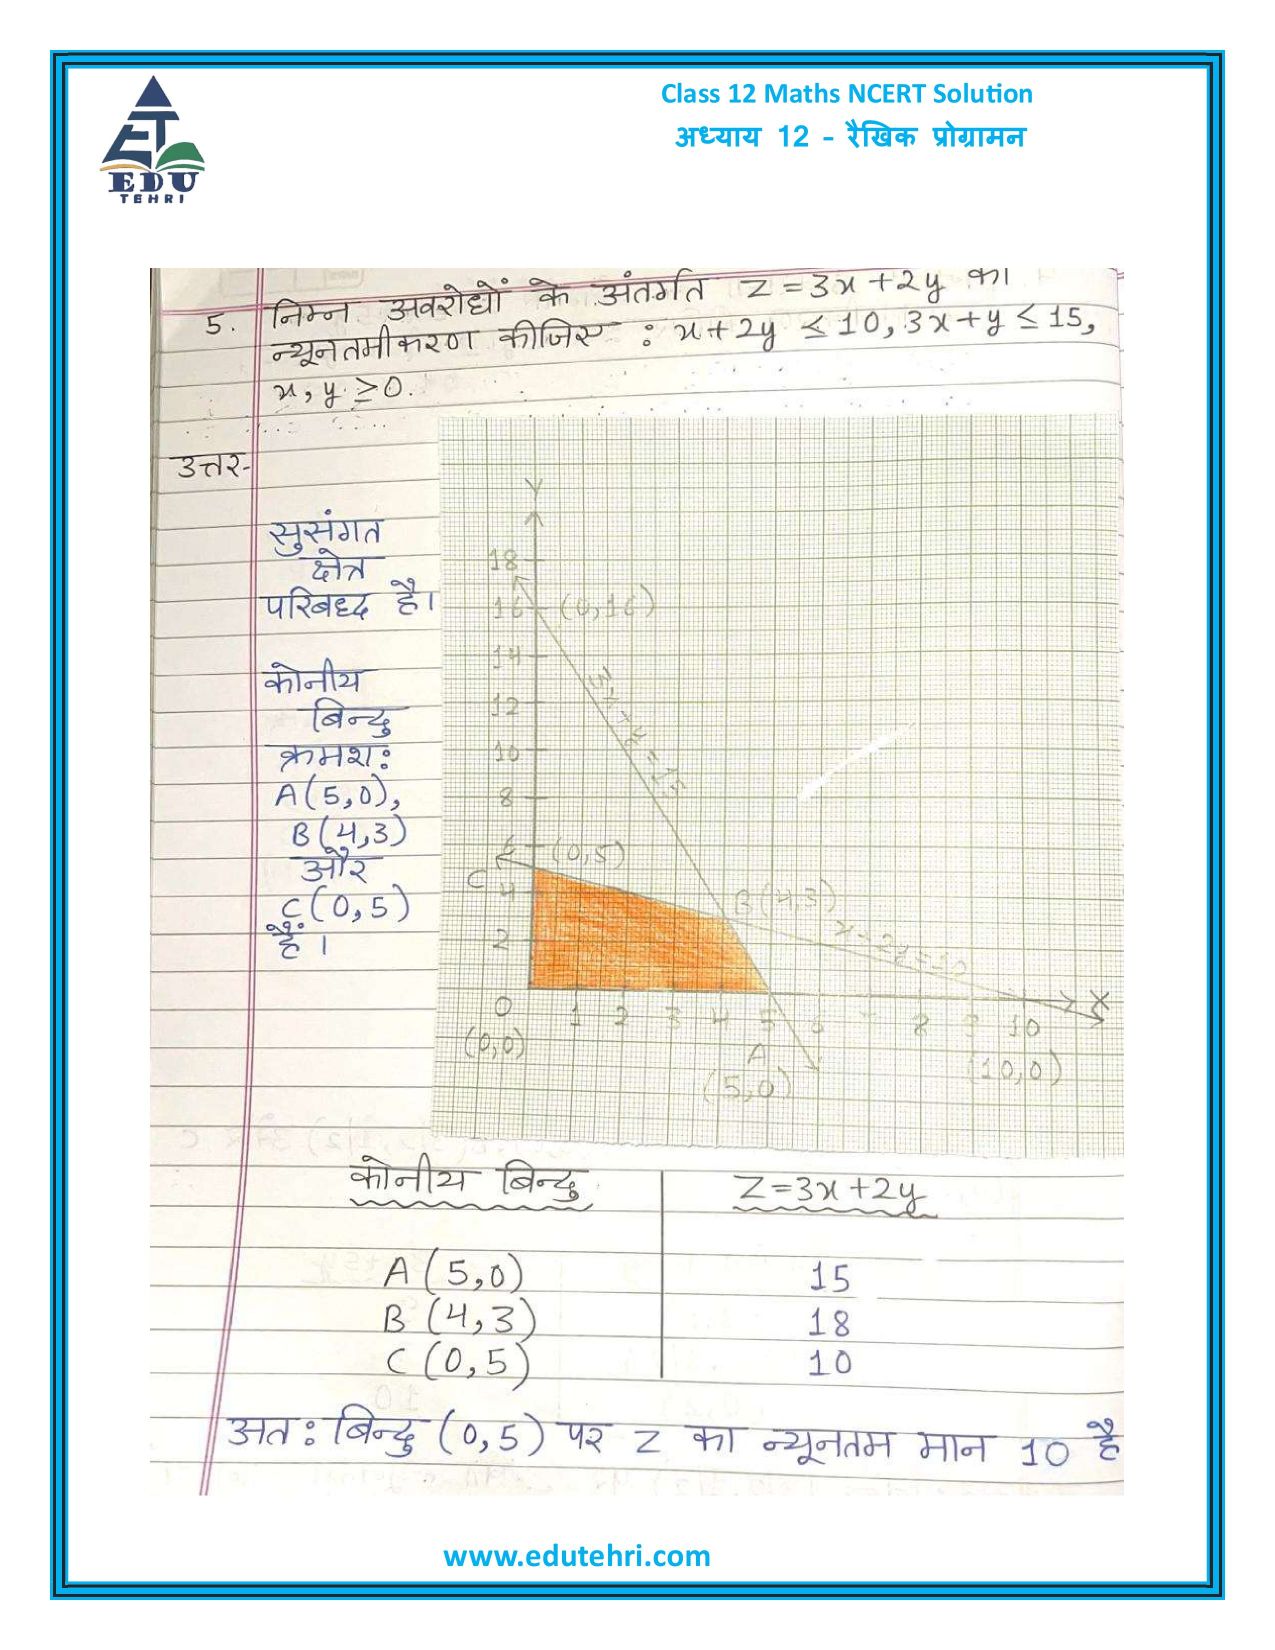 ET
EDU
TEHRI
Class 12 Maths NCERT Solution
अध्याय 12 - रैखिक प्रोग्रामन
5. निम्न अवरोधों के अंतर्गत Z=3x+2y का
न्यूनतमीकरण कीजिए : x+2y ≤ 10, 3x+y ≤ 15,
x, y ≥ 0.
उत्तर-
सुसंगत
क्षेत्र
परिबध्द है।
कोनीय
बिन्दु
क्रमश:
A(5,0),
B(4,3)
और
C(0,5)
हैं।
Y
18
16 (0,16)
14
3x+y=15
12
10
8
6 (0,5)
C
4
B(4,3)
2
x+2y=10
0 1 2 3 4 5 6 7 8 9 10 X
(0,0)
A
(5,0)
(10,0)
कोनीय बिन्दु Z=3x+2y
A (5,0) 15
B (4,3) 18
C (0,5) 10
अत: बिन्दु (0,5) पर Z का न्यूनतम मान 10 है
www.edutehri.com